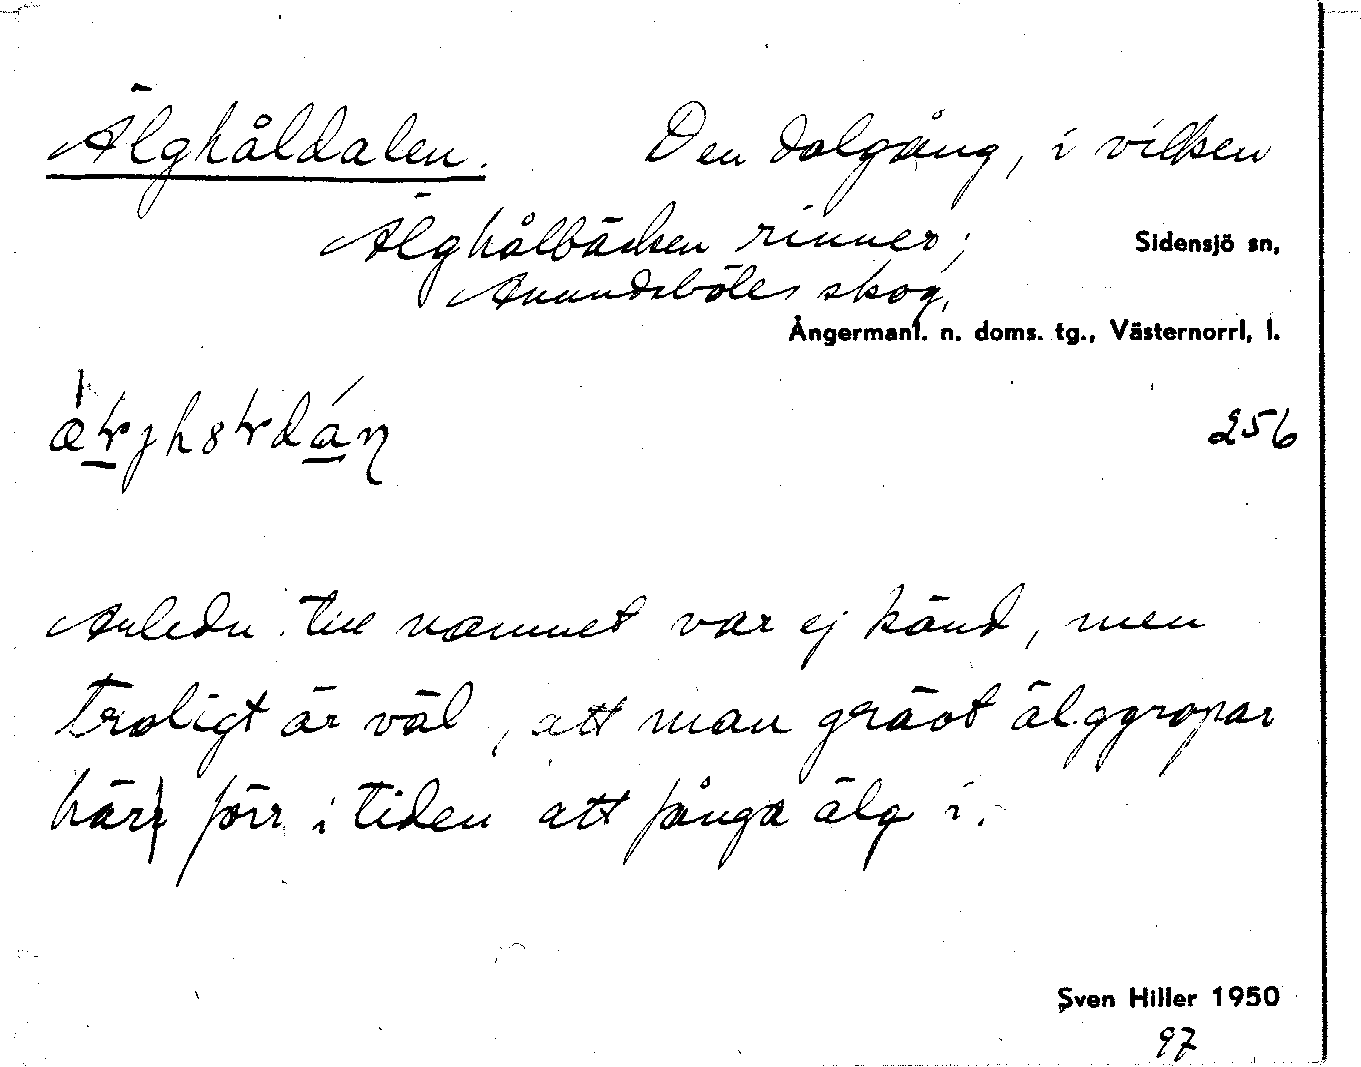 Älghåldalen. Den dalgång, i vilken
Älghålbäcken rinner;
Sidensjö sn,
Anundsböles skog,
Ångermanl. n. doms. tg., Västernorrl, l.
256
Anledn. till namnet var ej känd, men
troligt är väl, att man grävt älggropar
här förr i tiden att fånga älg i.
Sven Hiller 1950
97